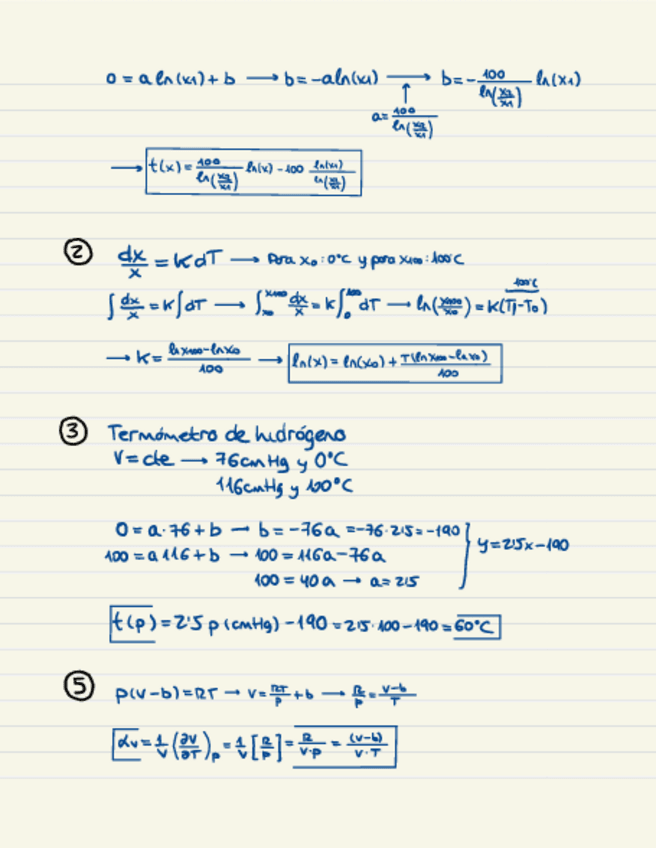 0 = a ln(x1) + b → b = -a ln(x1) → b = - 100/ln(x2/x1) ln(x1)
↑
a = 100/ln(x2/x1)
→ t(x) = 100/ln(x2/x1) ln(x) - 100 ln(x1)/ln(x2/x1)
② dx/x = K dT → Para x0: 0°C y para x100: 100°C
∫ dx/x = K ∫ dT → ∫x0^x100 dx/x = K ∫0^100 dT → ln(x100/x0) = K(Tf - T0)
100°C
→ K = lnx100 - lnx0 / 100 → ln(x) = ln(x0) + T(lnx100 - lnx0)/100
③ Termómetro de hidrógeno
V = cte → 76cmHg y 0°C
116cmHg y 100°C
0 = a·76 + b → b = -76a = -76·2'5 = -190
100 = a 116 + b → 100 = 116a - 76a
y = 2'5x - 190
100 = 40a → a = 2'5
t(p) = 2'5 p (cmHg) - 190 = 2'5·100 - 190 = 60°C
⑤ p(v-b) = RT → v = RT/p + b → R/p = v-b/T
αv = 1/v (∂v/∂T)p = 1/v [R/p] = R/v·p = (v-b)/v·T